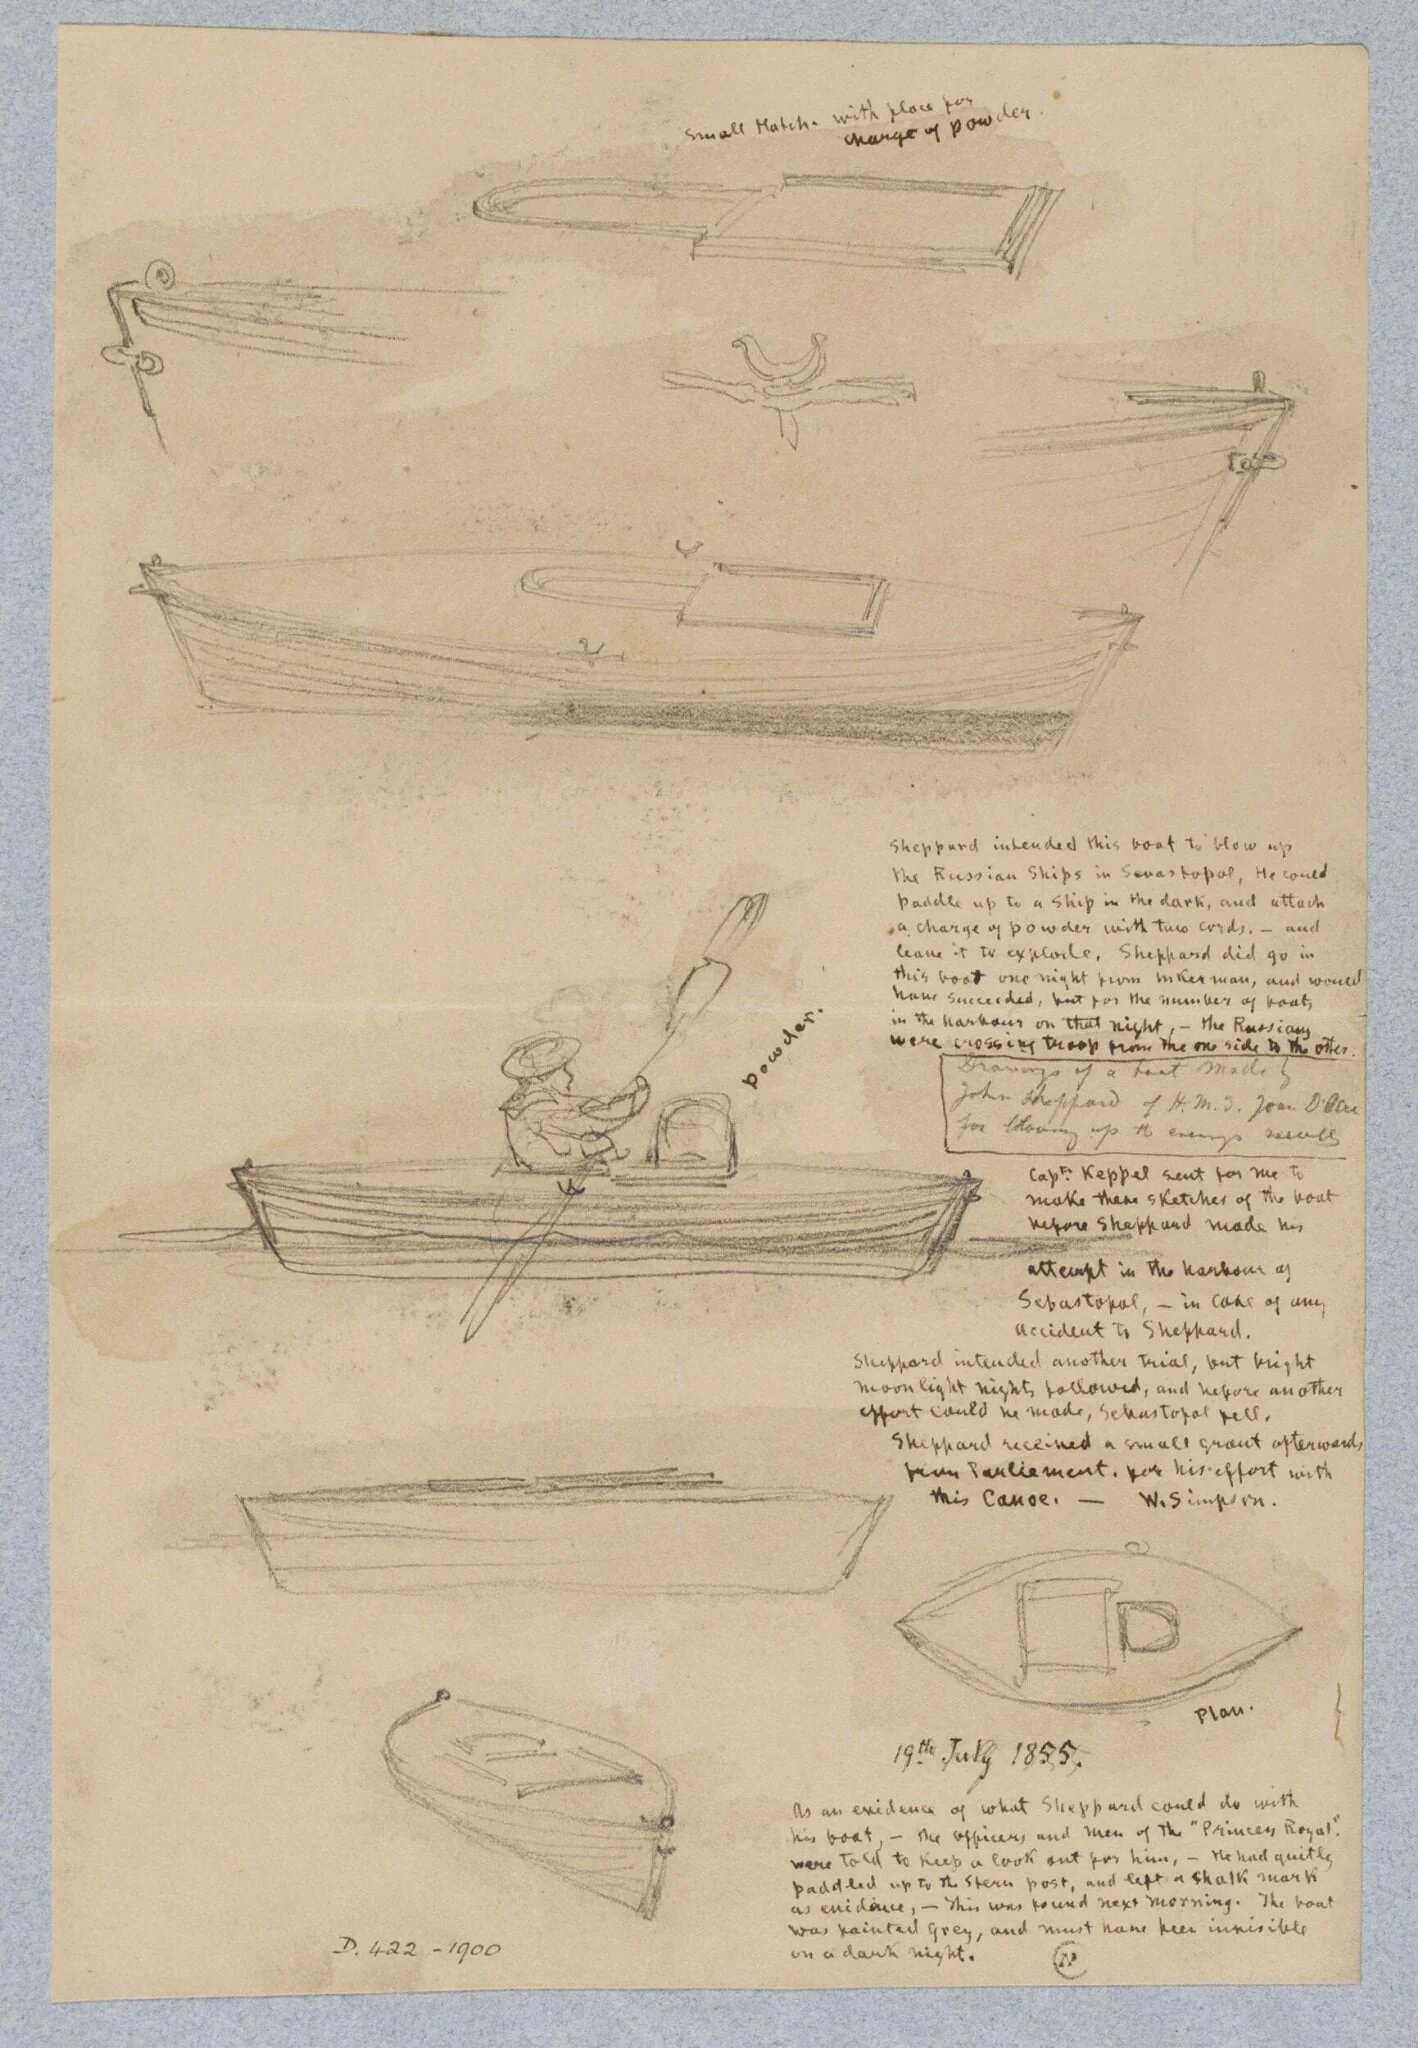 Small Hatch. with place for
charge of powder.
Sheppard intended this boat to blow up
the Russian Ships in Sevastopol, He could
paddle up to a ship in the dark, and attach
a charge of powder with two cords. – and
leave it to explode. Sheppard did go in
this boat one night from Inkerman, and would
have succeeded, but for the number of boats
in the harbour on that night, – the Russians
were crossing troops from the one side to the other.
Drawings of a boat made by
John Sheppard of H.M.S. Joan D'Acre
for blowing up the enemys vessells
powder.
Captn. Keppel sent for me to
make these sketches of the boat
before Sheppard made his
attempt in the harbour of
Sebastopol, – in case of any
accident to Sheppard.
Sheppard intended another trial, but bright
moonlight nights followed, and before another
effort could be made, Sebastopol fell.
Sheppard received a small grant afterwards
from Parliement. for his effort with
this Canoe. — W. Simpson.
Plan.
19th July 1855.
As an evidence of what Sheppard could do with
his boat, – the officers and men of the "Princess Royal".
were told to keep a look out for him, – He had quitly
paddled up to the stern post, and left a shalk mark
as evidence, – This was found next morning. The boat
was painted grey, and must have been invisible
on a dark night.
D. 422 - 1900